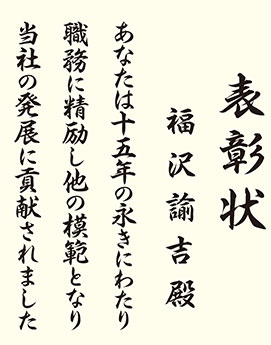 表彰状
福沢諭吉殿
あなたは十五年の永きにわたり
職務に精励し他の模範となり
当社の発展に貢献されました